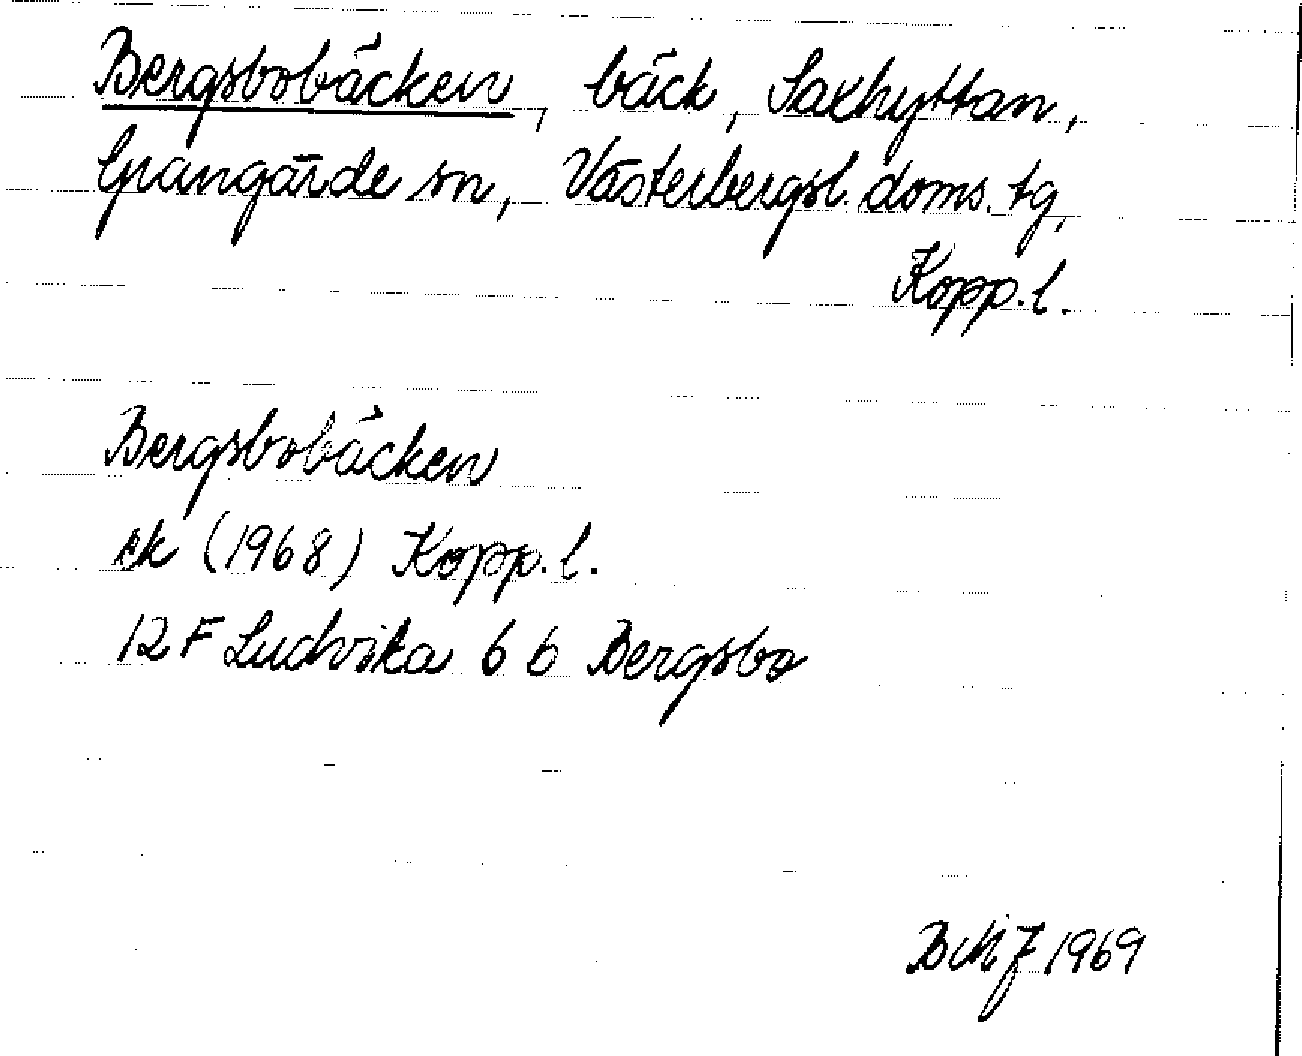 Bergsbobäcken, bäck, Saxhyttan,
Grangärde sn, Västerbergsl. doms. tg,
Kopp. l.
Bergsbobäcken
ek (1968) Kopp. l.
12 F Ludvika 6 b Bergsbo
1969